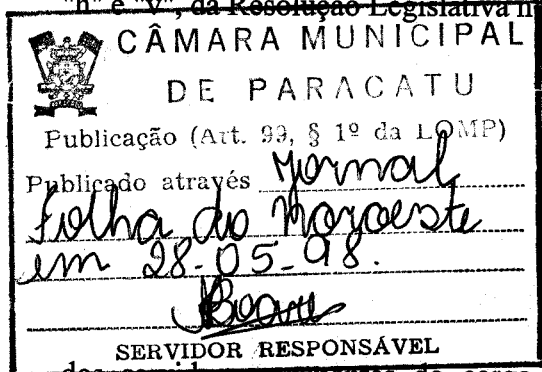 "n" e "v", da Resolução Legislativa n
CÂMARA MUNICIPAL
DE PARACATU
Publicação (Art. 99, § 1º da LOMP)
Publicado através Jornal
Folha do Noroeste
em 28-05-98.
SERVIDOR RESPONSÁVEL